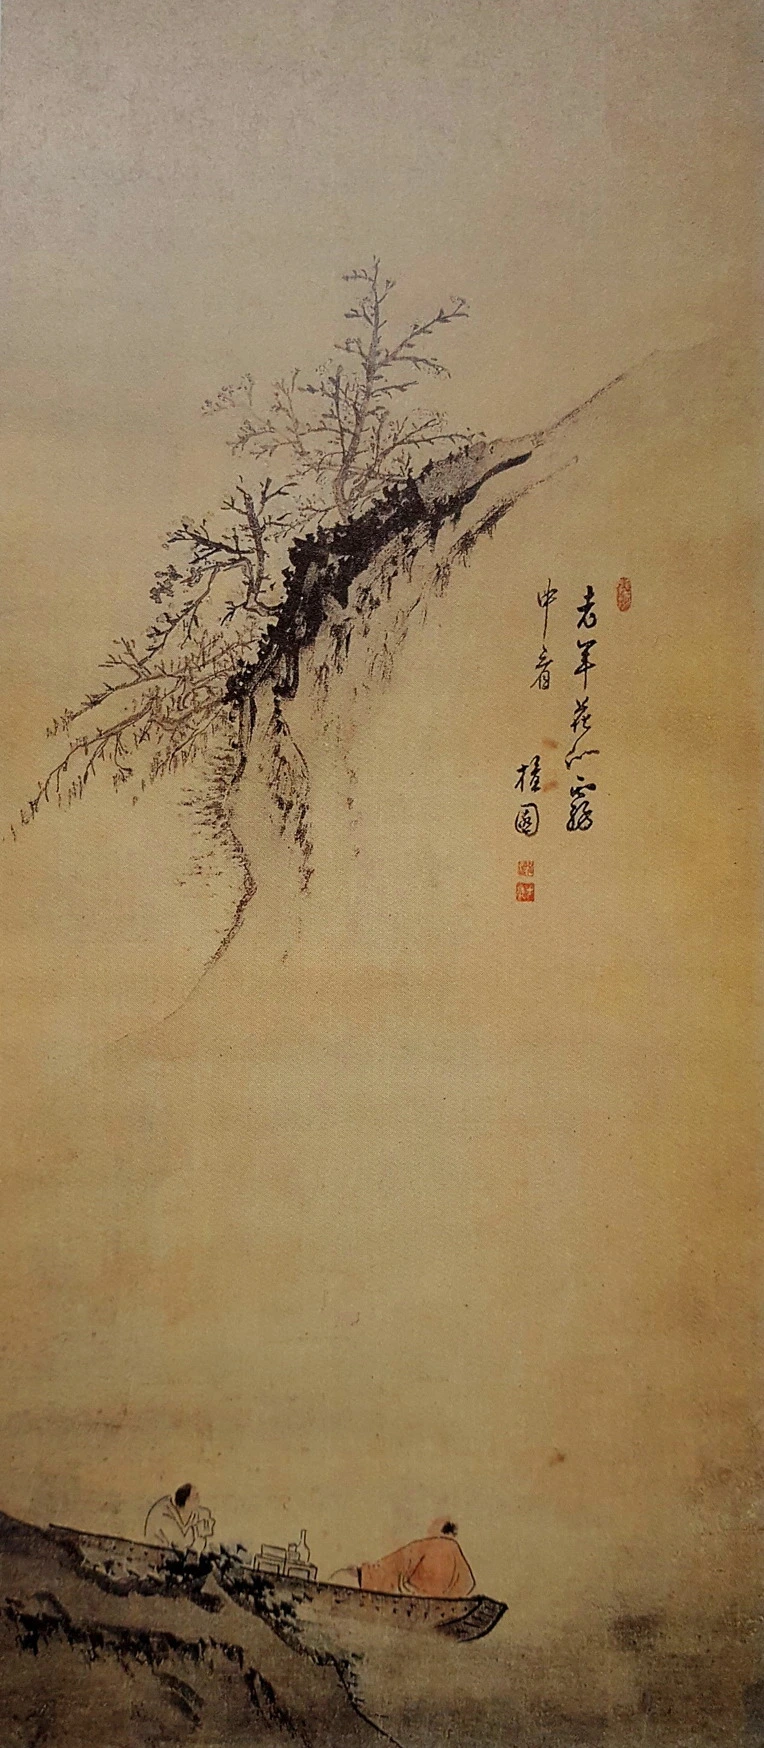 老年花似霧
中看　檀園